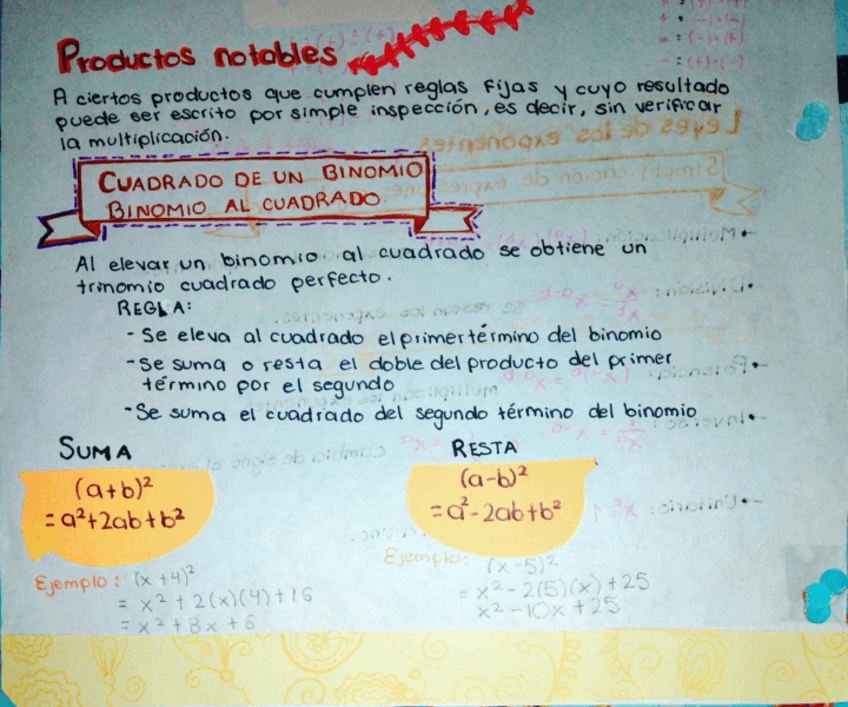 Productos notables
A ciertos productos que cumplen reglas fijas y cuyo resultado
puede ser escrito por simple inspección, es decir, sin verificar
la multiplicación.
CUADRADO DE UN BINOMIO
BINOMIO AL CUADRADO
Al elevar un binomio al cuadrado se obtiene un
trinomio cuadrado perfecto.
REGLA:
- Se eleva al cuadrado el primer término del binomio
- Se suma o resta el doble del producto del primer
término por el segundo
- Se suma el cuadrado del segundo término del binomio
SUMA
(a+b)²
= a²+2ab+b²
Ejemplo: (x+4)²
= x²+2(x)(4)+16
= x²+8x+6
RESTA
(a-b)²
= a²-2ab+b²
Ejemplo: (x-5)²
= x²-2(5)(x)+25
x²-10x+25